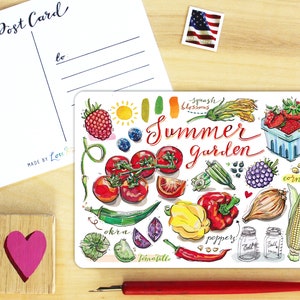 Post Card
to
MADE BY
squash
blossoms
Summer
garden
corn
okra
peppers
tomatillo
Ball